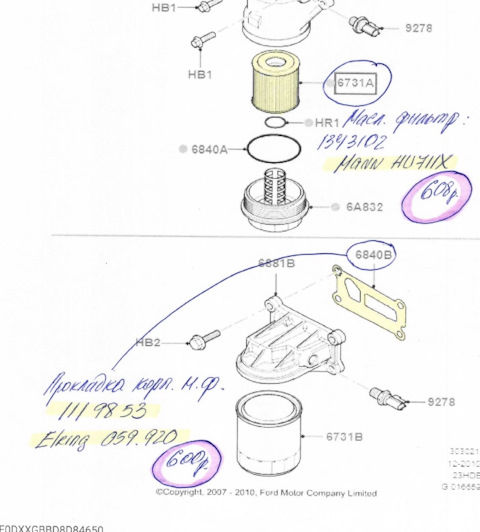 HB1
9278
HB1
6731A
HR1
Масл. фильтр:
1343102
6840A
Mann HU711X
608р.
6A832
6840B
6881B
HB2
Прокладка корп. м.ф.
1119853
9278
Elring 059.920
6731B
600р.
303021
12-2010
23HDE
G 016659
©Copyright, 2007 - 2010, Ford Motor Company Limited
F0DXXGBBD8D84650